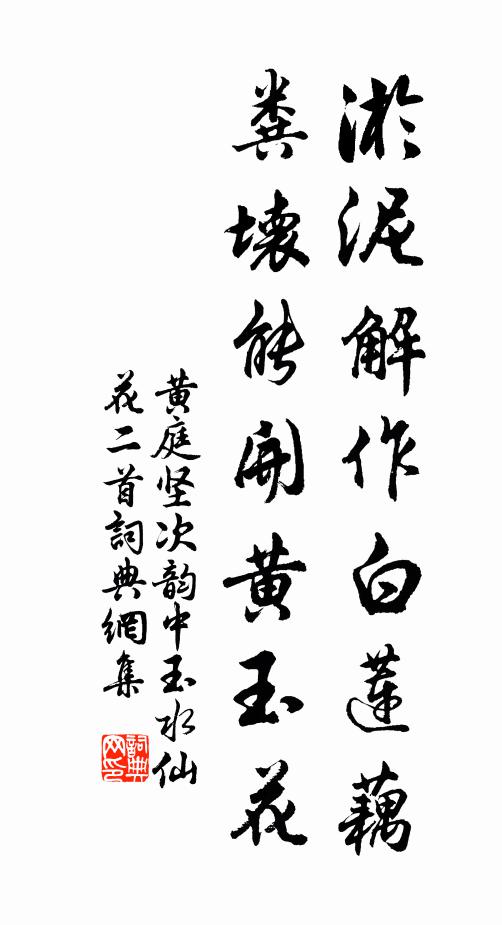 淤泥解作白蓮藕
糞壤能開黄玉花
黄庭坚次韵中玉水仙
花二首詞典網集
詞典
网印